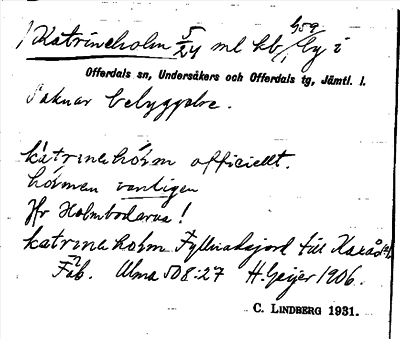 Katrineholm 5/24 ml kb by i
Offerdals sn, Undersåkers och Offerdals tg, Jämtl. l.
Saknar bebyggelse.
kátrinehòlm officiellt.
hólmen vanligen
Jfr Holmbodarna!
katrineholm till
Fäb. Ulma 508:27 H. Geijer 1906.
C. LINDBERG 1931.